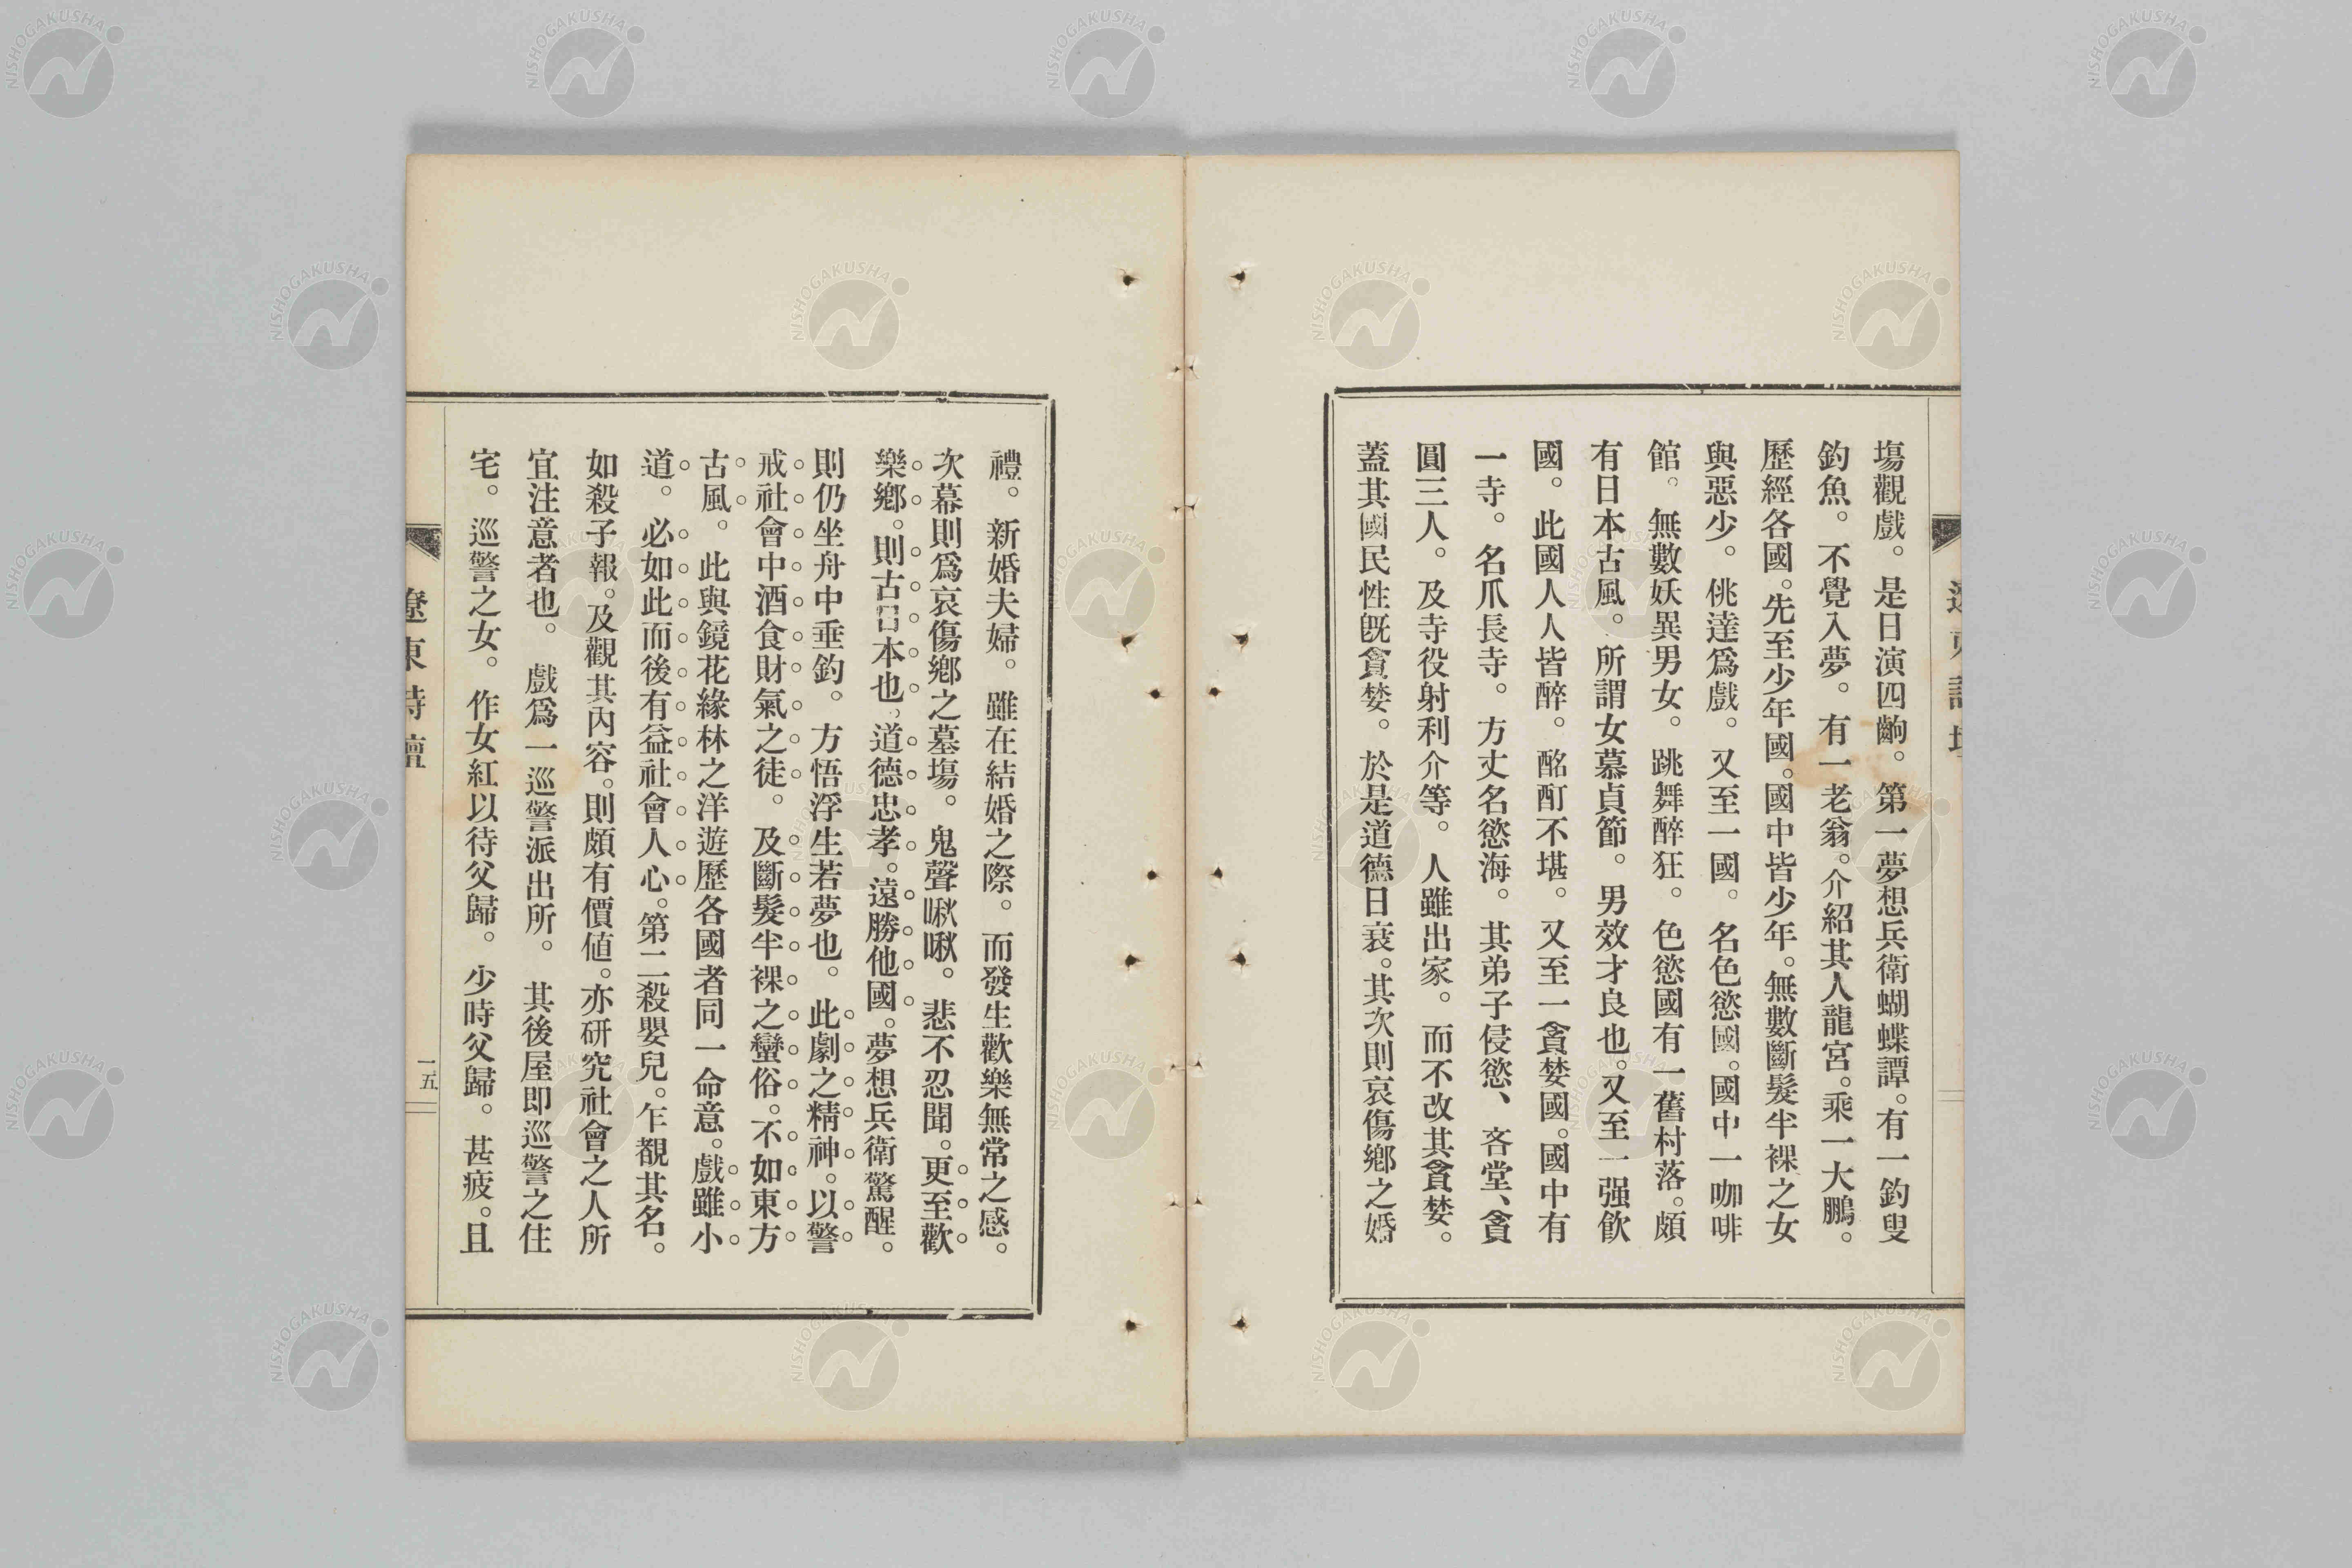 塲觀戲。是日演四齣。第一夢想兵衛蝴蝶譚。有一釣叟
釣魚。不覺入夢。有一老翁。介紹其人龍宮。乘一大鵬。
歷經各國。先至少年國。國中皆少年。無數斷髮半裸之女
與惡少。佻達爲戲。又至一國。名色慾國。國中一咖啡
館。無數妖異男女。跳舞醉狂。色慾國有一舊村落。頗
有日本古風。所謂女慕貞節。男效才良也。又至一强飲
國。此國人人皆醉。酩酊不堪。又至一貪婪國。國中有
一寺。名爪長寺。方丈名慾海。其弟子侵慾、吝堂、貪
圓三人。及寺役射利介等。人雖出家。而不改其貪婪。
蓋其國民性旣貪婪。於是道德日衰。其次則哀傷鄉之婚
禮。新婚夫婦。雖在結婚之際。而發生歡樂無常之感。
次幕則爲哀傷鄉之墓塲。鬼聲啾啾。悲不忍聞。更至歡
樂鄉。則古日本也。道德忠孝。遠勝他國。夢想兵衛驚醒。
則仍坐舟中垂釣。方悟浮生若夢也。此劇之精神。以警
戒社會中酒食財氣之徒。及斷髮半裸之蠻俗。不如東方
古風。此與鏡花緣林之洋遊歷各國者同一命意。戲雖小
道。必如此而後有益社會人心。第二殺嬰兒。乍覩其名。
如殺子報。及觀其內容。則頗有價值。亦研究社會之人所
宜注意者也。戲爲一巡警派出所。其後屋即巡警之住
宅。巡警之女。作女紅以待父歸。少時父歸。甚疲。且
遼東詩壇
一五